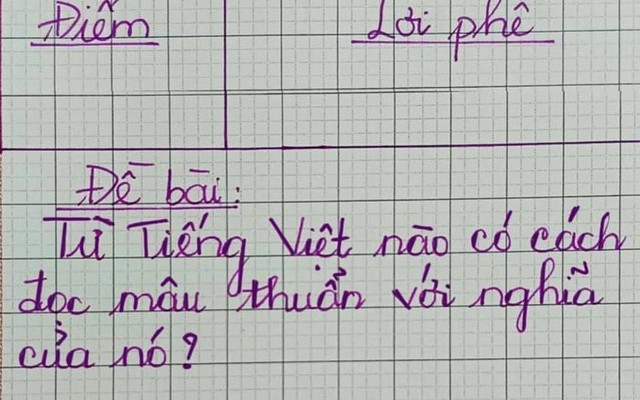 Điểm
Lời phê
Đề bài:
Từ Tiếng Việt nào có cách
đọc mâu thuẩn với nghĩa
của nó?